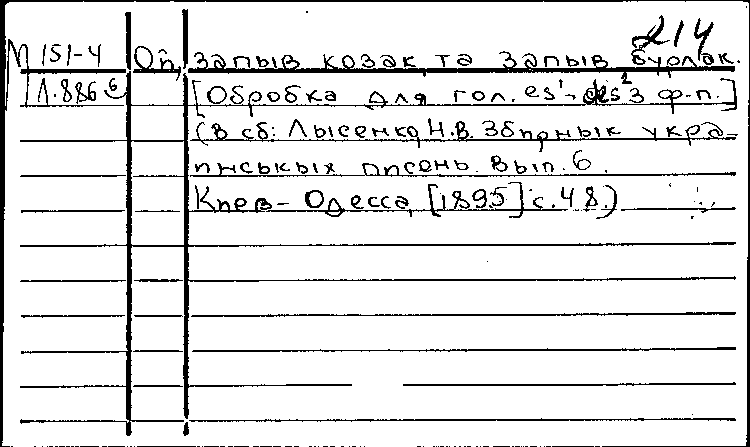 214
М 151-4 Ой, запыв козак, та запыв бурлак.
Л.886 [Обробка для гол. es¹- des² з ф-п.]
(В сб: Лысенко, Н.В. Збирнык укра-
инськых писень. Вып. 6.
Киев - Одесса, [1895] с. 48.)